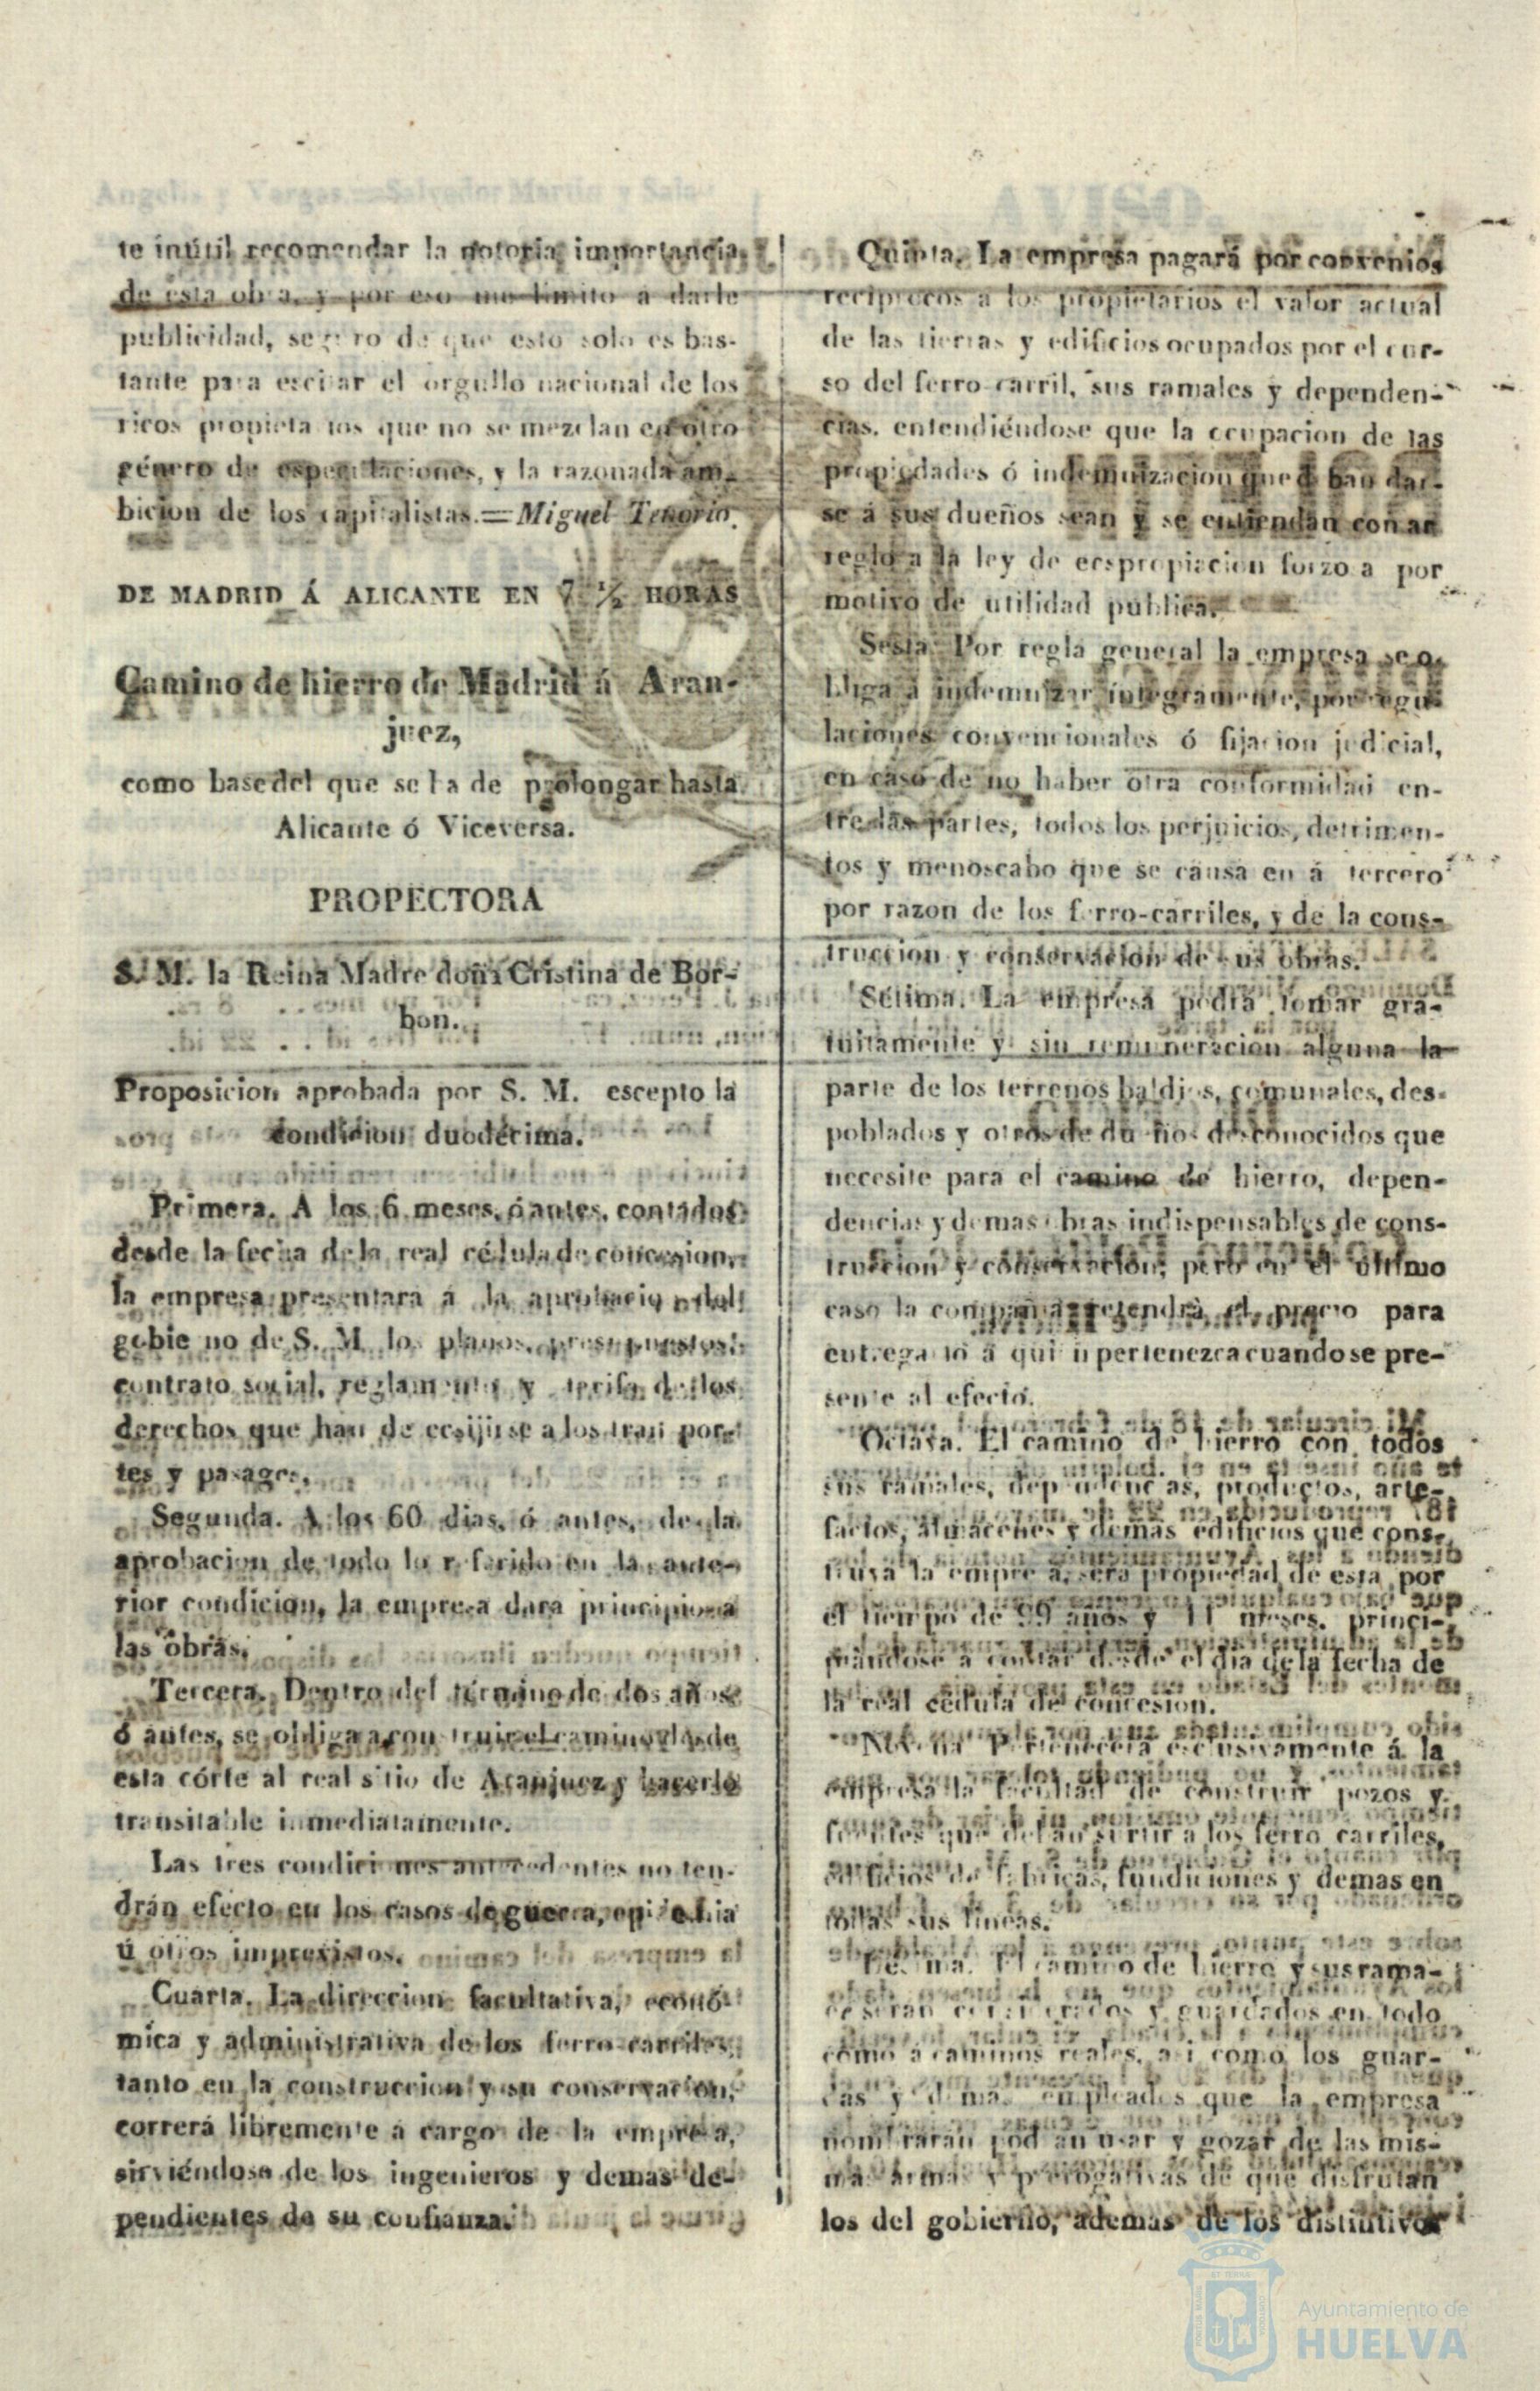 te inútil recomendar la notoria importancia
de esta obra, y por eso me limito á darle
publicidad, seguro de que esto solo es bas-
tante para escitar el orgullo nacional de los
ricos propietarios que no se mezclan en otro
género de especulaciones, y la razonada am-
bicion de los capitalistas.=Miguel Tenorio.
DE MADRID Á ALICANTE EN 7 ½ HORAS
Camino de hierro de Madrid á Aran-
juez,
como base del que se ha de prolongar hasta
Alicante ó Viceversa.
PROPECTORA
S. M. la Reina Madre doña Cristina de Bor-
bon.
Proposicion aprobada por S. M. escepto la
condicion duodécima.
Primera. A los 6 meses, ó antes, contados
desde la fecha de la real cédula de concesion,
la empresa presentará á la aprobacion del
gobierno de S. M. los planos, presupuestos,
contrato social, reglamentos y tarifa de los
derechos que han de ecsijirse a los tran por-
tes y pasages.
Segunda. A los 60 dias, ó antes, de la
aprobacion de todo lo referido en la ante-
rior condicion, la empresa dara principio a
las obras.
Tercera. Dentro del término de dos años
ó antes, se obliga a construir el camino desde
esta córte al real sitio de Aranjuez y hacerlo
transitable inmediatamente.
Las tres condiciones antecedentes no ten-
drán efecto en los casos de guerra, epidemia
ú otros imprevistos.
Cuarta. La direccion facultativa, econó-
mica y administrativa de los ferro-carriles,
tanto en la construccion y su conservacion,
correrá libremente á cargo de la empresa,
sirviéndose de los ingenieros y demas de-
pendientes de su confianza.
Quinta. La empresa pagará por convenios
recíprocos á los propietarios el valor actual
de las tierras y edificios ocupados por el cur-
so del ferro carril, sus ramales y dependen-
cias, entendiéndose que la ocupacion de las
propiedades ó indemnizacion que han dar-
se á sus dueños sean y se entiendan con ar
reglo a la ley de ecspropiacion forzo a por
motivo de utilidad pública.
Sesta. Por regla general la empresa se o-
bliga á indemnizar íntegramente, por regu
laciones convencionales ó fijacion judicial,
en caso de no haber otra conformidad en-
tre las partes, todos los perjuicios, detrimen-
tos y menoscabo que se causa en á tercero
por razon de los ferro-carriles, y de la cons-
truccion y conservacion de sus obras.
Sétima. La empresa podrá tomar gra-
tuitamente y sin remuneracion alguna la
parte de los terrenos baldios, comunales, des-
poblados y otros de dueños desconocidos que
necesite para el camino de hierro, depen-
dencias y demas obras indispensables de cons-
truccion y conservacion; pero en el último
caso la compañia retendrá el precio para
entregarlo á quien pertenezca cuando se pre-
sente al efecto.
Octava. El camino de hierro con todos
sus ramales, dependencias, productos, arte-
factos, almacenes y demas edificios que cons-
truya la empresa, será propiedad de esta por
el tiempo de 99 años y 11 meses, princi-
piándose á contar desde el dia de la fecha de
la real cédula de concesion.
Novena. Pertenecerá esclusivamente á la
empresa la facultad de construir pozos y
fuentes que deban surtir a los ferro carriles,
edificios de fabricas, fundiciones y demas en
todas sus líneas.
Décima. El camino de hierro y sus rama-
es serán considerados y guardados en todo
como á caminos reales, asi como los guar-
das y demas empleados que la empresa
nombrarán podrán usar y gozar de las mis-
mas armas y prerogativas de que disfrutan
los del gobierno, ademas de los distintivos
Ayuntamiento de
HUELVA